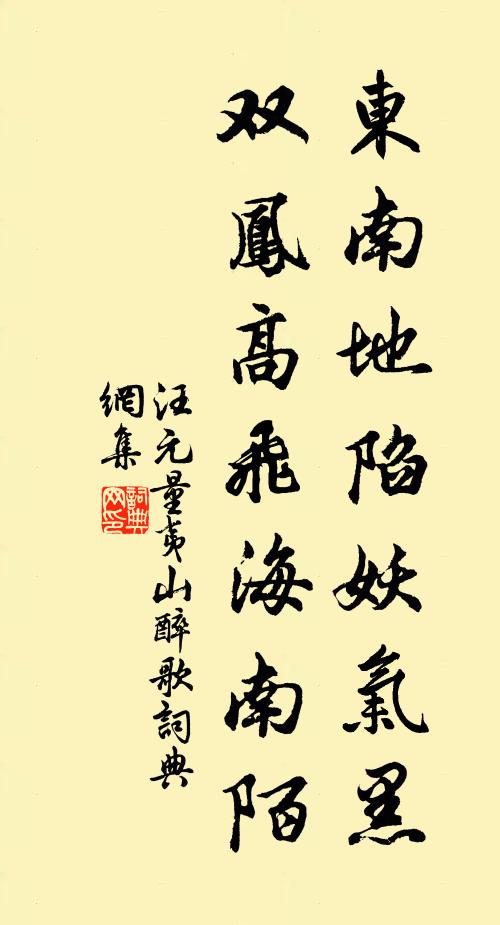 東南地陷妖氣黑
双鳳高飛海南陌
汪元量夷山醉歌詞典
網集
詞典
网印